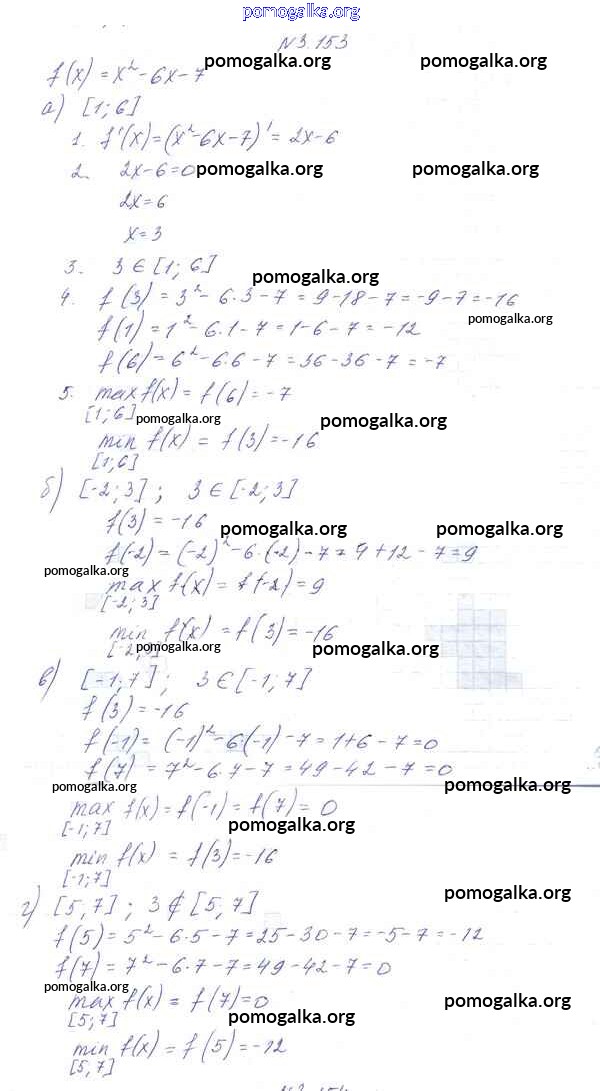 pomogalka.org
N3.153
f(x) = x² - 6x - 7 pomogalka.org pomogalka.org
а) [1; 6]
1. f'(x) = (x² - 6x - 7)' = 2x - 6
2. 2x - 6 = 0 pomogalka.org pomogalka.org
2x = 6
x = 3
3. 3 ∈ [1; 6]
pomogalka.org
4. f(3) = 3² - 6·3 - 7 = 9 - 18 - 7 = -9 - 7 = -16
pomogalka.org
f(1) = 1² - 6·1 - 7 = 1 - 6 - 7 = -12
f(6) = 6² - 6·6 - 7 = 36 - 36 - 7 = -7
5. max f(x) = f(6) = -7
[1; 6] pomogalka.org pomogalka.org
min f(x) = f(3) = -16
[1; 6]
б) [-2; 3]; 3 ∈ [-2; 3]
f(3) = -16 pomogalka.org pomogalka.org
f(-2) = (-2)² - 6·(-2) - 7 = 4 + 12 - 7 = 9
pomogalka.org
max f(x) = f(-2) = 9
[-2; 3]
min f(x) = f(3) = -16
[-2; 3] pomogalka.org pomogalka.org
в) [-1; 7]; 3 ∈ [-1; 7]
f(3) = -16
f(-1) = (-1)² - 6·(-1) - 7 = 1 + 6 - 7 = 0
f(7) = 7² - 6·7 - 7 = 49 - 42 - 7 = 0
pomogalka.org pomogalka.org
max f(x) = f(-1) = f(7) = 0
[-1; 7] pomogalka.org
min f(x) = f(3) = -16
[-1; 7]
pomogalka.org
г) [5, 7]; 3 ∉ [5, 7]
f(5) = 5² - 6·5 - 7 = 25 - 30 - 7 = -5 - 7 = -12
f(7) = 7² - 6·7 - 7 = 49 - 42 - 7 = 0
pomogalka.org
max f(x) = f(7) = 0 pomogalka.org
[5; 7] pomogalka.org
min f(x) = f(5) = -12
[5, 7]